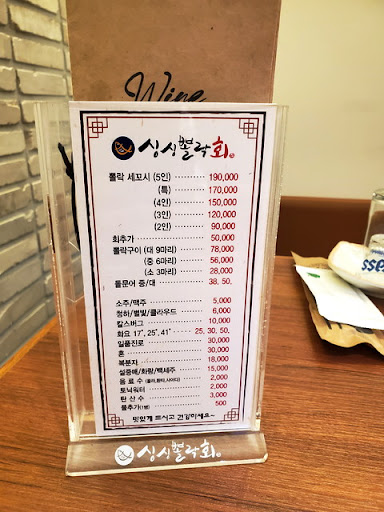 Wine
싱싱뽈락회
뽈락 세꼬시 (5인) 190,000
(특) 170,000
(4인) 150,000
(3인) 120,000
(2인) 90,000
회추가 50,000
뽈락구이 (대 9마리) 78,000
(중 6마리) 56,000
(소 3마리) 28,000
돌문어 중/대 38, 50,
소주/맥주 5,000
청하/별빛/클라우드 6,000
칼스버그 10,000
화요 17°, 25°, 41° 25, 30, 50,
일품진로 30,000
혼 30,000
복분자 18,000
설중매/화랑/백세주 15,000
음료수 (콜라,환타,사이다) 2,000
토닉워터 2,000
탄산수 3,000
물추가(1병) 500
맛있게 드시고 건강하세요~
싱싱뽈락회